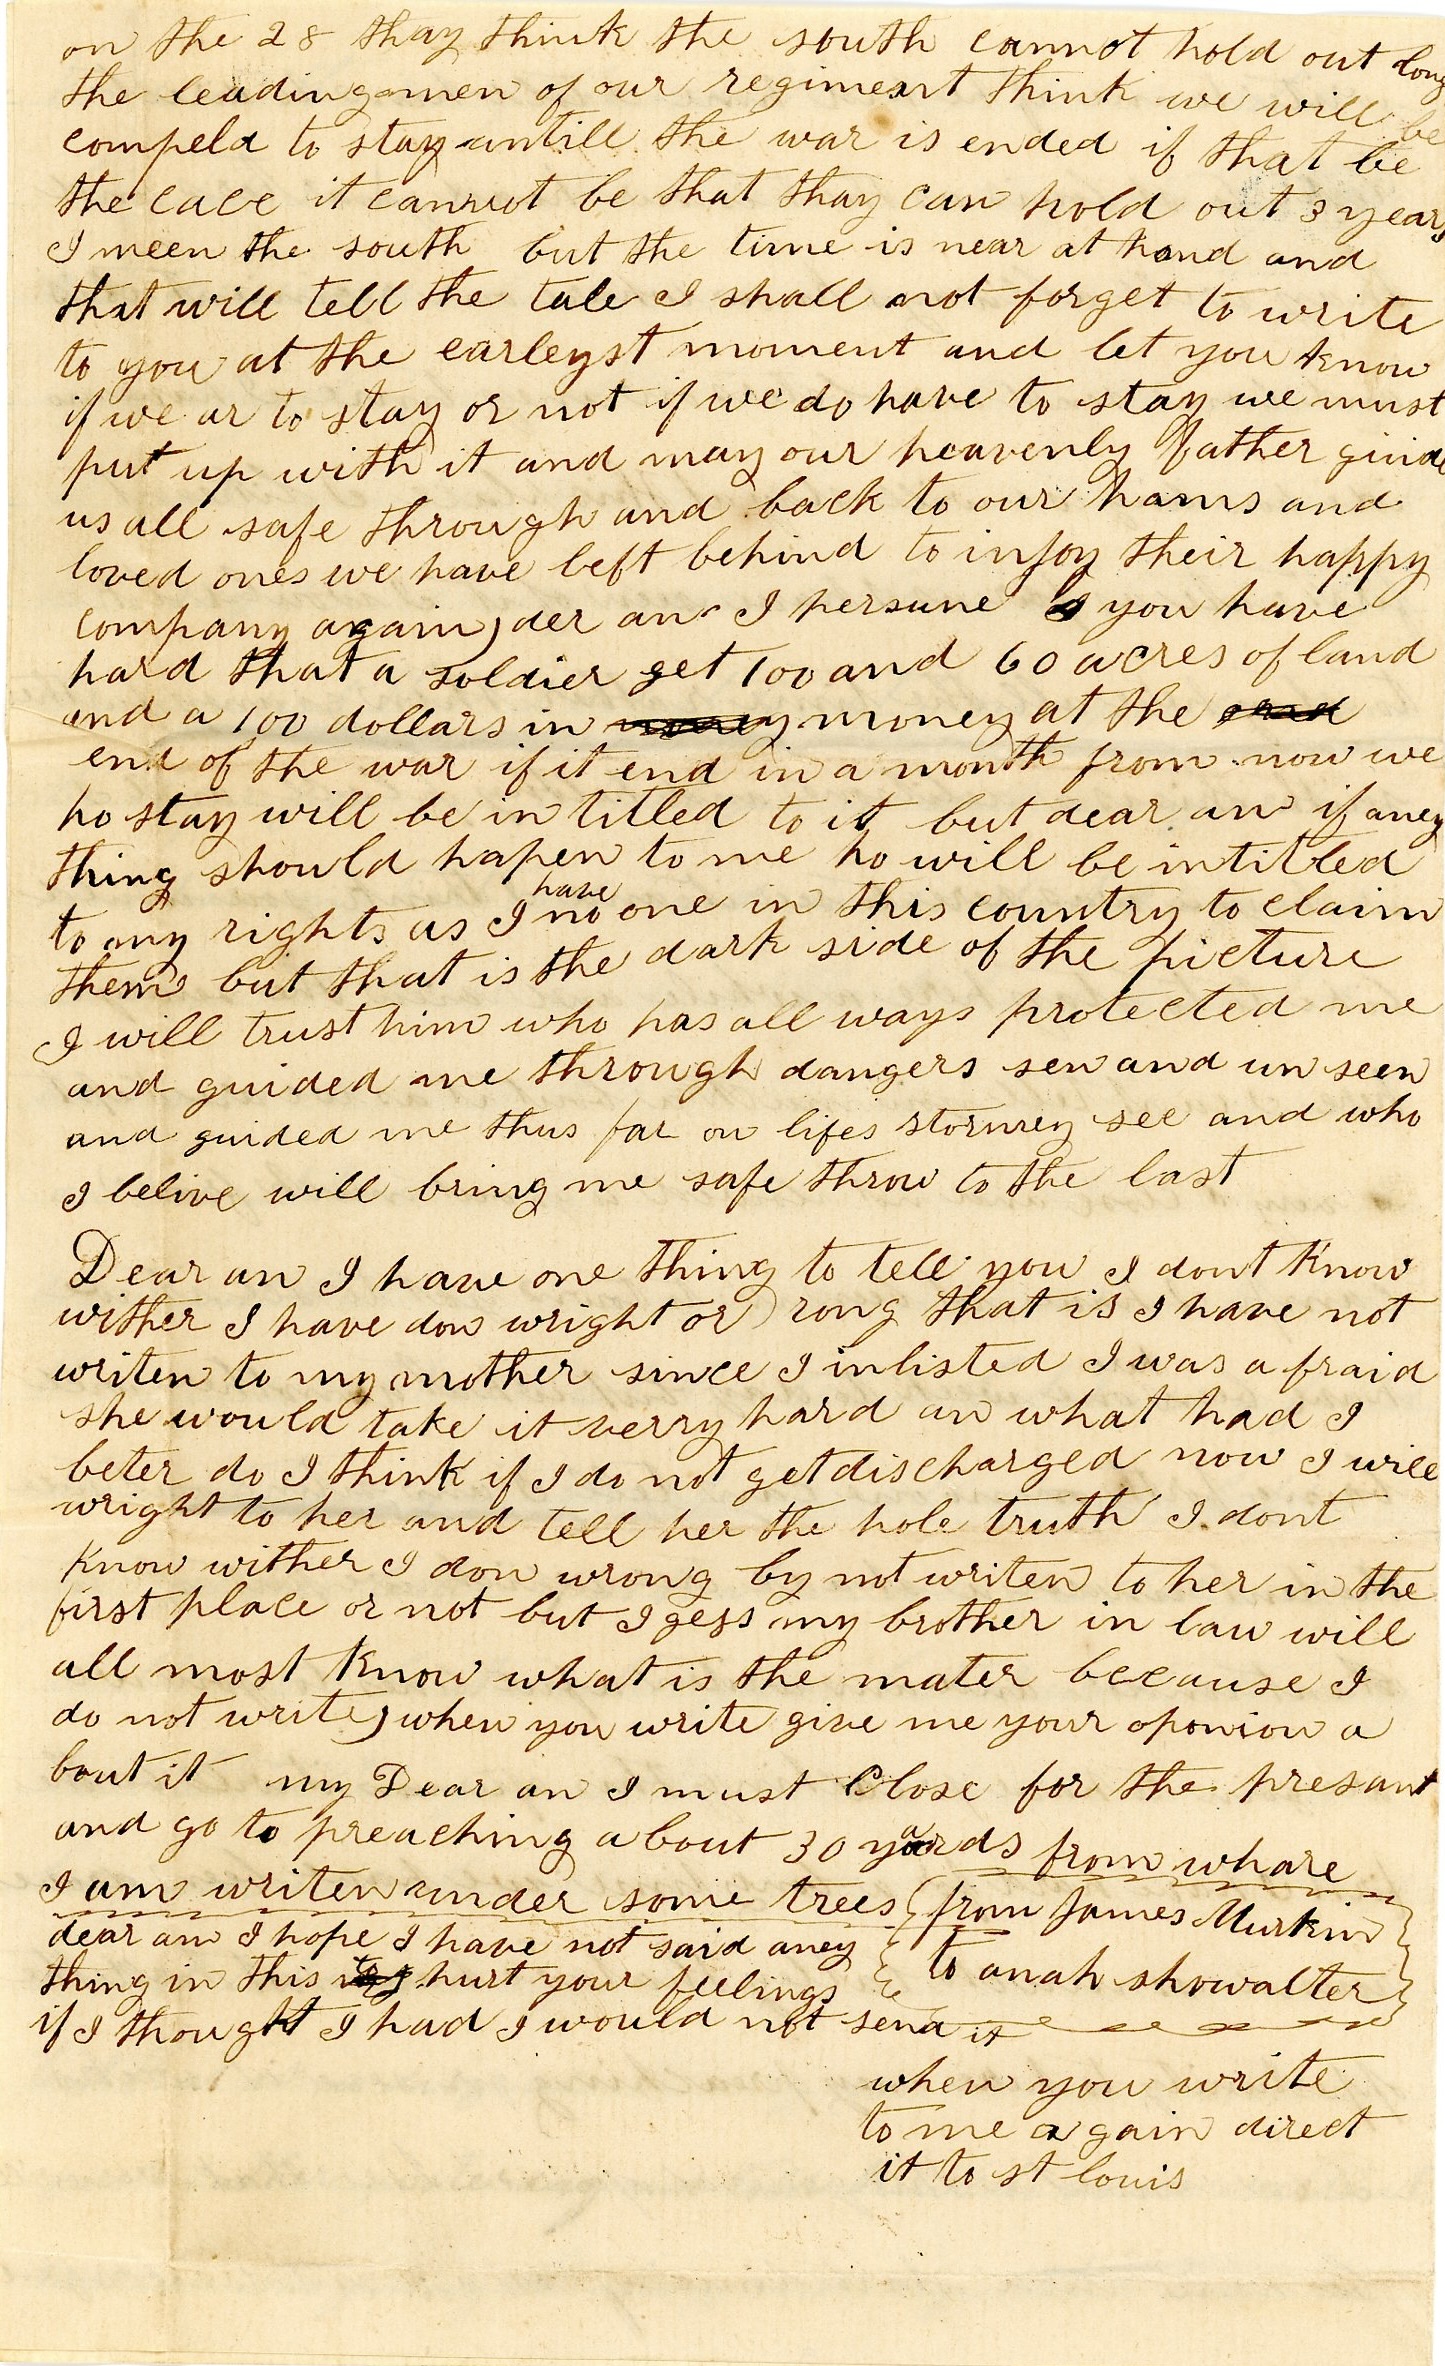 on the 28 thay think the south cannot hold out long
the leading men of our regiment think we will be
compeld to stay untill the war is ended if that be
the cace it cannot be that thay can hold out 3 years
I meen the south but the time is near at hand and
that will tell the tale I shall not forget to write
to you at the earleyst moment and let you know
if we ar to stay or not if we do have to stay we must
put up with it and may our heavenly father guide
us all safe through and back to our homs and
loved ones we have left behind to injoy their happy
company again, der an I persume you have
hard that a soldier get 100 and 60 acres of land
and a 100 dollars in money at the
end of the war if it end in a month from now we
ho stay will be in titled to it but dear an if aney
thing should hapen to me ho will be intitled
to my rights as I have no one in this country to claim
them but that is the dark side of the picture
I will trust him who has all ways protected me
and guided me through dangers sen and un seen
and guided me thus far on lifes stormey see and who
I belive will bring me safe throw to the last
Dear an I have one thing to tell you I dont know
wither I have don wright or rong that is I have not
writen to my mother since I inlisted I was a fraid
she would take it verry hard an what had I
beter do I think if I do not get discharged now I will
wright to her and tell her the hole truth I dont
know wither I don wrong by not writen to her in the
first place or not but I gess my brother in law will
all most know what is the mater because I
do not write, when you write give me your oponion a
bout it my Dear an I must Close for the presant
and go to preaching a bout 30 yards from whare
I am writen under some trees
dear an I hope I have not said aney
thing in this to hurt your feelings
if I thought I had I would not send it
from James Murkin
to anah showalter
when you write
to me a gain direct
it to st louis